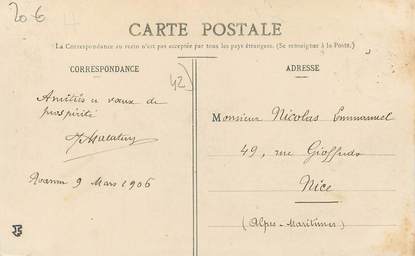 20-6
CARTE POSTALE
(La Correspondance au recto n'est pas acceptée par tous les pays étrangers. (Se renseigner à la Poste.)
CORRESPONDANCE
42
Amitiés & vœux de
prospérité
Roanne 9 Mars 1906
ADRESSE
Monsieur Nicolas Emmanuel
49, rue Gioffredo
Nice
(Alpes-Maritimes)